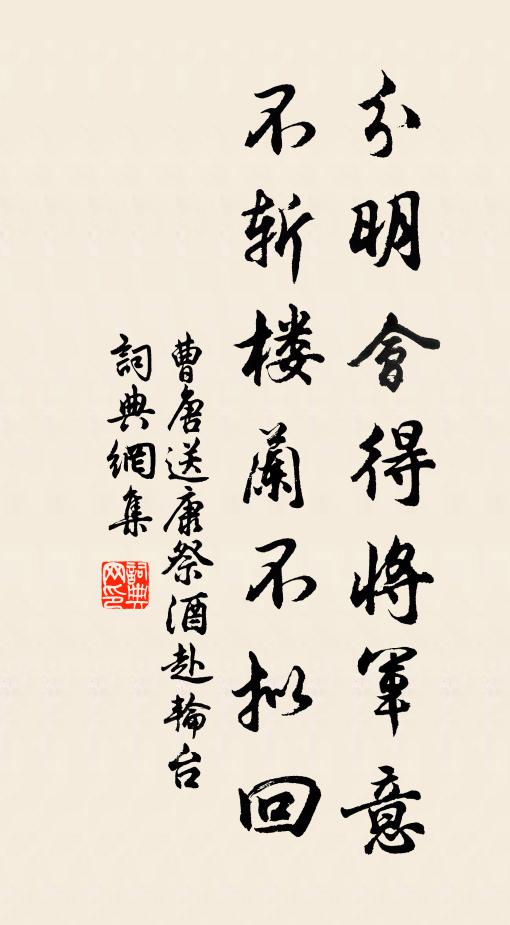 分明會得將軍意
不斬楼蘭不拟回
曹唐送康祭酒赴輪台
詞典網集
詞典网印